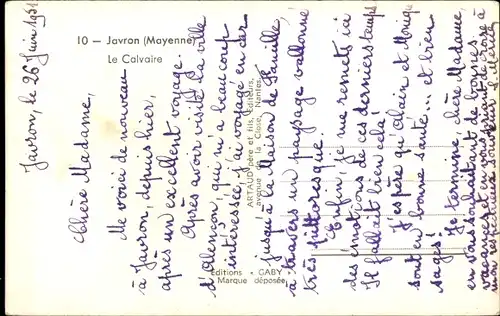 10 — Javron (Mayenne)
Le Calvaire
ARTAUD père et fils, Éditeurs,
avenue de la Close, Nantes
Editions - GABY
Marque déposée
Javron, le 26 Juin 1951
Chère Madame,
Me voici de nouveau
à Javron, depuis hier,
après un excellent voyage.
Après avoir visité la ville
d'Alençon, qui m'a beaucoup
intéressée, j'ai voyagé en car
jusqu'à la Maison de Famille,
à travers un paysage vallonné
très pittoresque.
Enfin, je me remets ici
des émotions de ces derniers temps
Il fallait bien cela!
J'espère qu'Alain et Monique
sont en bonne santé... et bien
sages!
Je termine, chère Madame,
en vous souhaitant de bonnes
vacances et en vous priant de croire à